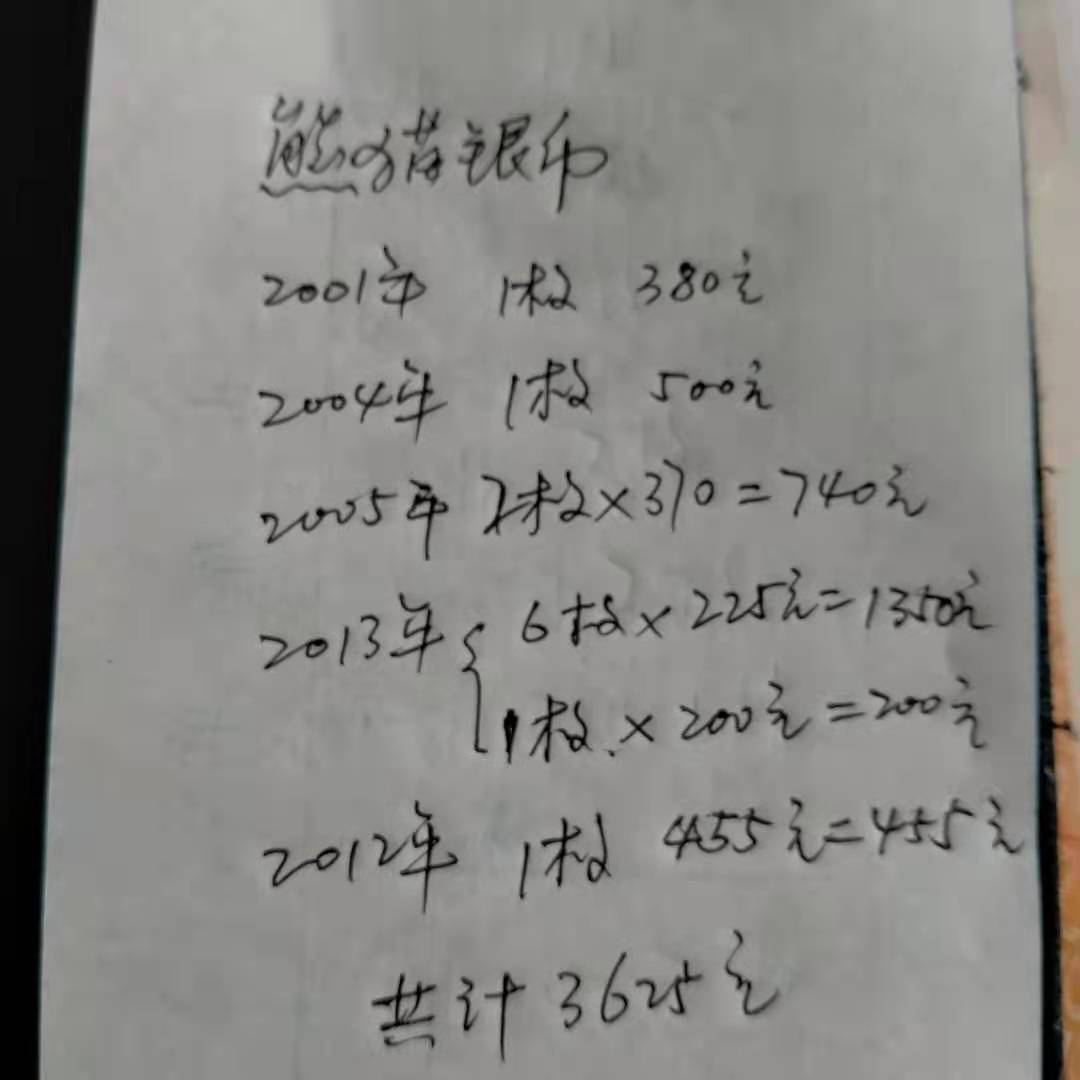 熊猫银币
2001年 1枚 380元
2004年 1枚 500元
2005年 2枚×370=740元
2013年{ 6枚×225元=1350元
1枚.×200元=200元
2012年 1枚 455元=455元
共计3625元